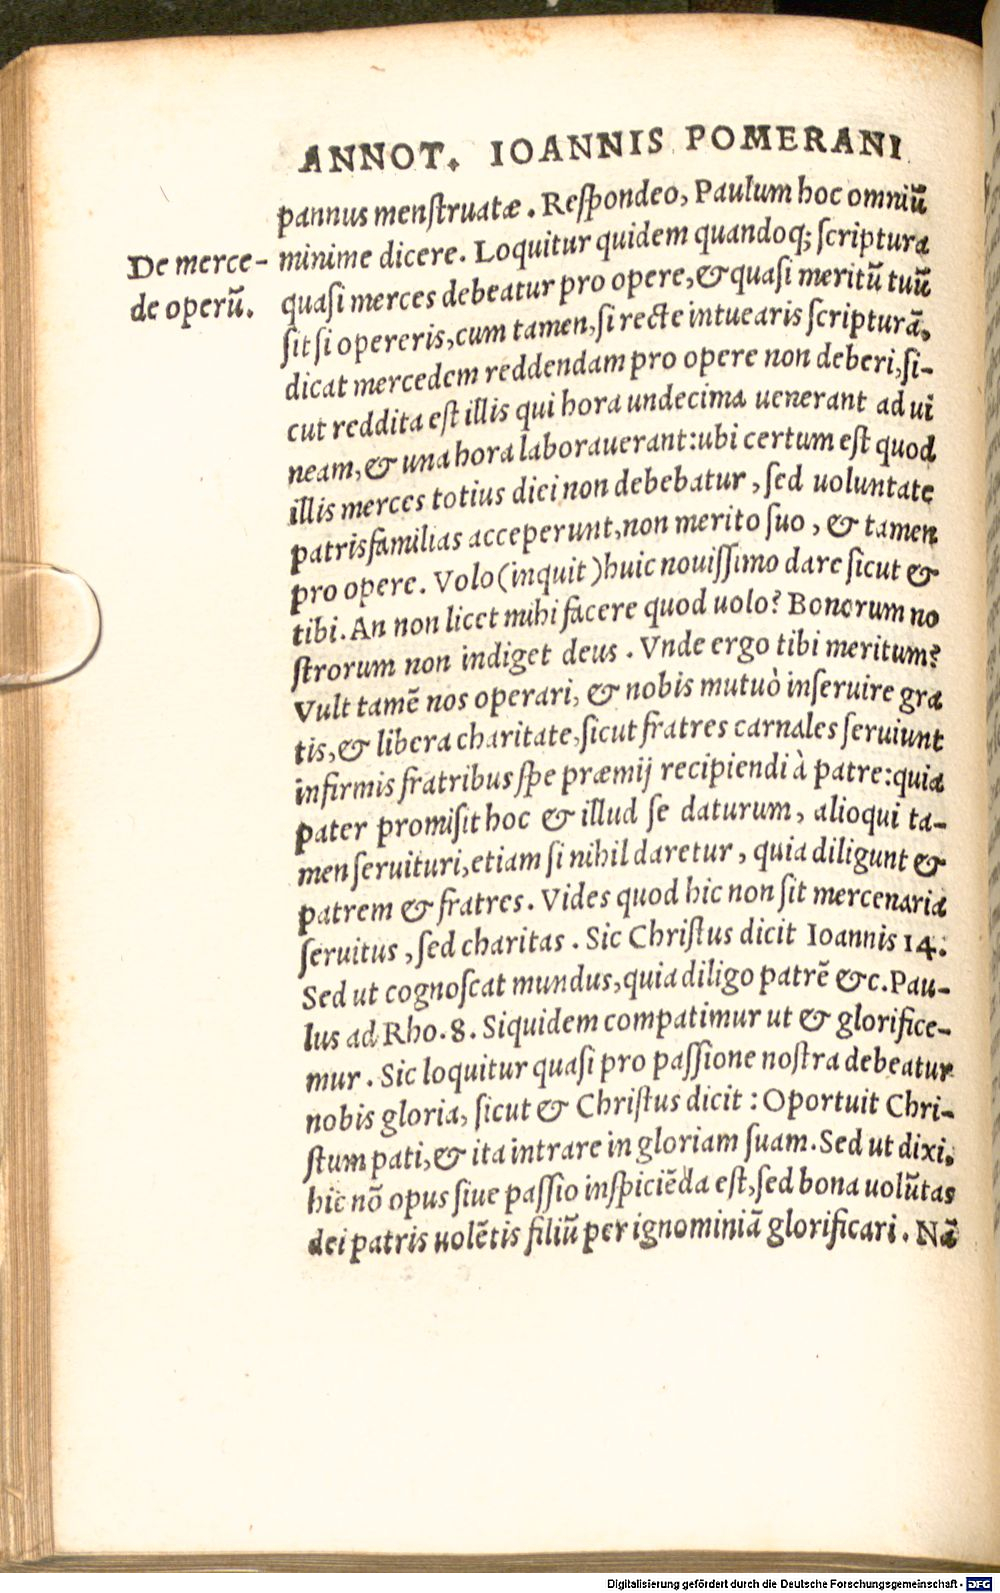 ANNOT. IOANNIS POMERANI
pannus menſtruatæ. Reſpondeo, Paulum hoc omniũ
De merce-
de operũ.
minime dicere. Loquitur quidem quandoq; ſcriptura
quaſi merces debeatur pro opere, & quaſi meritũ tuũ
ſit ſi opereris, cum tamen, ſi recte intuearis ſcripturã,
dicat mercedem reddendam pro opere non deberi, ſi-
cut reddita eſt illis qui hora undecima uenerant ad ui
neam, & una hora laborauerant: ubi certum eſt quod
illis merces totius diei non debebatur, ſed uoluntate
patrisfamilias acceperunt, non merito ſuo, & tamen
pro opere. Volo (inquit) huic nouiſſimo dare ſicut &
tibi. An non licet mihi facere quod uolo? Bonorum no
ſtrorum non indiget deus. Vnde ergo tibi meritum?
Vult tamẽ nos operari, & nobis mutuò inſeruire gra
tis, & libera charitate, ſicut fratres carnales ſeruiunt
infirmis fratribus ſpe præmij recipiendi à patre: quia
pater promiſit hoc & illud ſe daturum, alioqui ta-
men ſeruituri, etiam ſi nihil daretur, quia diligunt &
patrem & fratres. Vides quod hic non ſit mercenaria
ſeruitus, ſed charitas. Sic Chriſtus dicit Ioannis 14.
Sed ut cognoſcat mundus, quia diligo patrẽ &c. Pau-
lus ad Rho. 8. Siquidem compatimur ut & glorifice-
mur. Sic loquitur quaſi pro paſſione noſtra debeatur
nobis gloria, ſicut & Chriſtus dicit: Oportuit Chri-
ſtum pati, & ita intrare in gloriam ſuam. Sed ut dixi,
hic nõ opus ſiue paſſio inſpiciẽda eſt, ſed bona uolũtas
dei patris uolẽtis filiũ per ignominiã glorificari. Nã
Digitalisierung gefördert durch die Deutsche Forschungsgemeinschaft - DFG